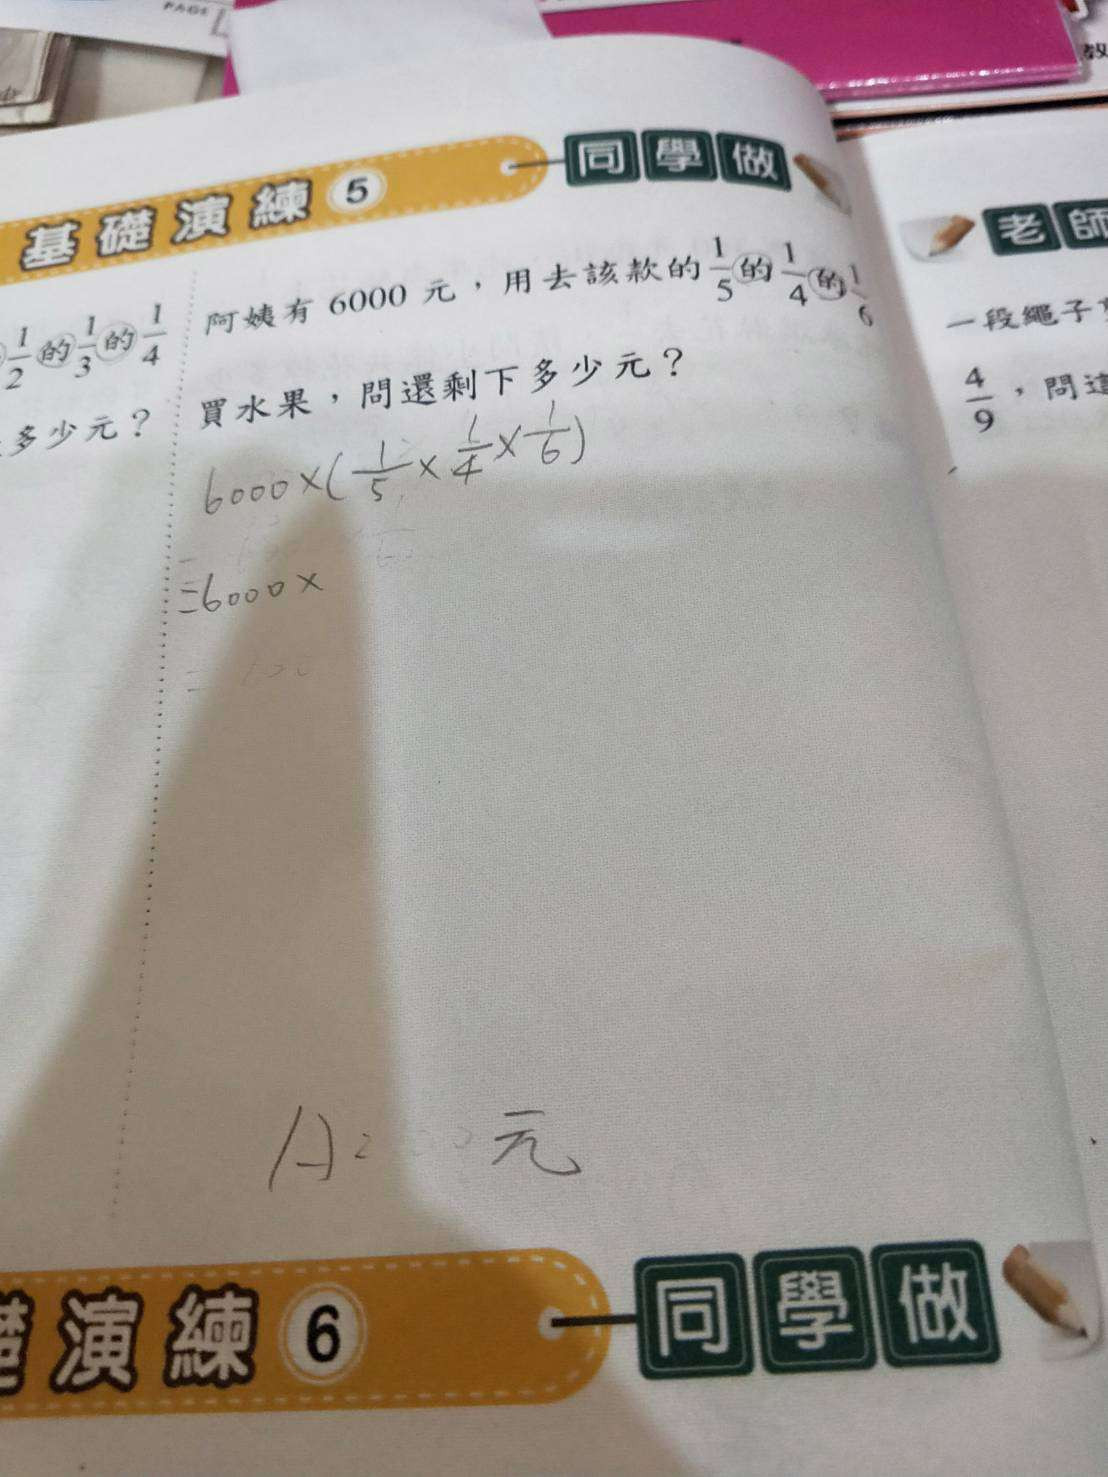 PAGE
教
基礎演練 5 同學做
老師
1/2 的 1/3 的 1/4
多少元？
阿姨有 6000 元，用去該款的 1/5 的 1/4 的 1/6
買水果，問還剩下多少元？
一段繩子
4/9，問這
6000×(1/5×1/4×1/6)
=6000×
A: 元
礎演練 6 同學做